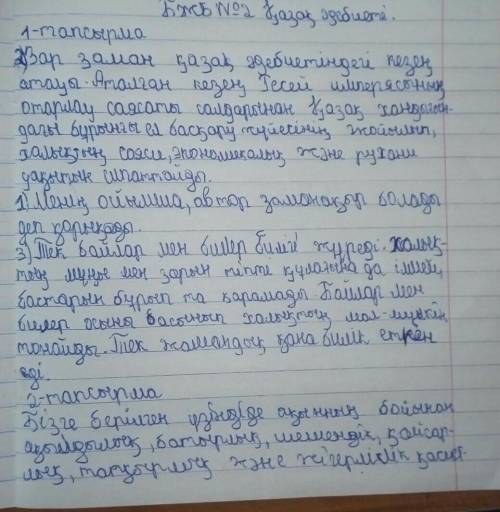 БЖБ №2 Қазақ әдебиеті.
1-тапсырма
2)Зар заман қазақ әдебиетіндегі кезең
атауы. Аталған кезең Ресей имперясының
отарлау саясаты салдарынан Қазақ хандығын-
дағы бұрынғы ел басқару жүйесінің жойылып,
халықтың саяси, экономикалық және рухани
дақытын сипаттайды.
1) Менің ойымша, автор заманақыр болады
деп қорықады.
3) Тек байлар мен билер билігі жүреді. Халық-
тың мұңы мен зарын тіпті құлағына да ілмей,
бастарын бұрып та қарамады Байлар мен
билер осыны басынып халықтың мал-мүлкін
тонайды. Тек жамандық қана билік еткен
еді.
2-тапсырма
Бізге берілген үзіндіде ақынның бойынан
ақылдылық, батырлық, шешендік, қайсар-
лық, тапқырлық және жігерлілік қасиет-